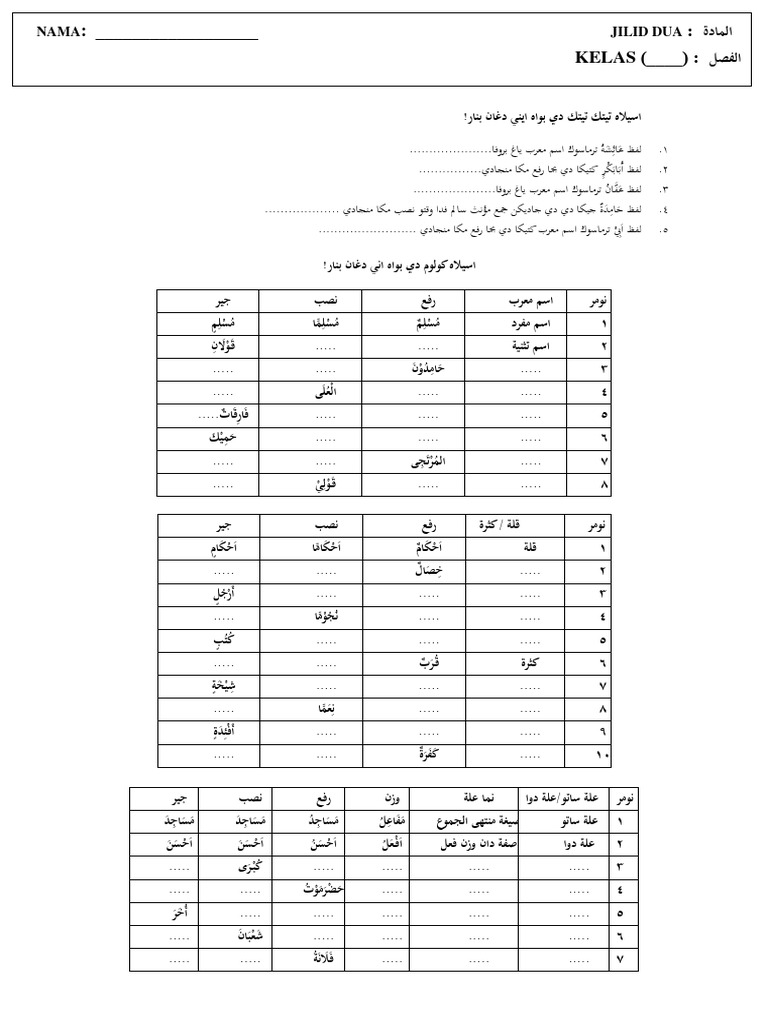 NAMA: ____________________ JILID DUA : المادة
KELAS (____) : الفصل
اسيلاه تيتك تيتك دي بواه ايني دغان بنار!
١. لفظ عَائِشَةُ ترماسوك اسم معرب ياغ بروفا.....................
٢. لفظ أَبَابَكْرٍ كتيكا دي بحا رفع مكا منجادي................
٣. لفظ حَقَّانُ ترماسوك اسم معرب ياغ بروفا.....................
٤. لفظ حَامِدَةٌ جيكا دي دي جاديكن جمع مؤنث سالم فدا وقتو نصب مكا منجادي ...................
٥. لفظ اَبِيْ ترماسوك اسم معرب كتيكا دي بحا رفع مكا منجادي .........................
اسيلاه كولوم دي بواه اني دغان بنار!
نومر اسم معرب رفع نصب جير
١ اسم مفرد مُسْلِمٌ مُسْلِمًا مُسْلِمٍ
٢ اسم تثنية ..... ..... قَوْلَانِ
٣ ..... حَامِدُوْنَ ..... .....
٤ ..... ..... الْعُلَى .....
٥ ..... ..... ..... فَارِقَاتٌ.....
٦ ..... ..... ..... حَمِيْكَ
٧ ..... المُرْتَجِى ..... .....
٨ ..... ..... قَوْلِيْ .....
نومر قلة / كثرة رفع نصب جير
١ قلة اَحْكَامٌ اَحْكَامًا اَحْكَامٍ
٢ ..... خِصَالٌ ..... .....
٣ ..... ..... ..... أَرْجُلٍ
٤ ..... ..... نُجُوْمًا .....
٥ ..... ..... ..... كُتُبٍ
٦ كثرة قُرَبٌ ..... .....
٧ ..... ..... ..... شِيْخَةٍ
٨ ..... ..... نِعَمًا .....
٩ ..... ..... ..... أَفْئِدَةٍ
١٠ ..... كَفَرَةٌ ..... .....
نومر علة ساتو/علة دوا نما علة وزن رفع نصب جير
١ علة ساتو صيغة منتهى الجموع مَفَاعِلُ مَسَاجِدُ مَسَاجِدَ مَسَاجِدَ
٢ علة دوا صفة دان وزن فعل اَفْعَلُ اَحْسَنُ اَحْسَنَ اَحْسَنَ
٣ ..... ..... ..... ..... كُبْرَى .....
٤ ..... ..... ..... حَضْرَمَوْتُ ..... .....
٥ ..... ..... ..... ..... ..... أُخَرَ
٦ ..... ..... ..... ..... شَعْبَانَ .....
٧ ..... ..... ..... فَلَانَةُ ..... .....